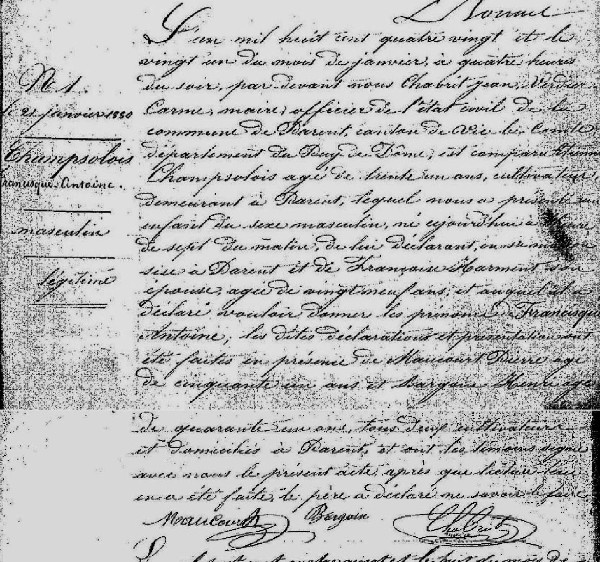 N° 1.
le 21 janvier 1880
Champsolois
Francisque Antoine.
masculin
légitime
L'an mil huit cent quatre vingt et le
vingt un du mois de janvier, à quatre heures
du soir, par devant nous Chabrit Jean,
maire, officier de l'état civil de la
commune de Parent, canton de Vic le Comte
département du Puy de Dôme, est comparu Etienne
Champsolois agé de trente un ans, cultivateur
demeurant à Parent, lequel nous a présenté un
enfant du sexe masculin, né aujourd'hui à
de sept du matin, de lui déclarant, en sa maison
sise à Parent et de Françoise Harment son
épouse, agée de vingt neuf ans, et auquel il a
déclaré vouloir donner les prénoms de Francisque
Antoine, les dites déclarations et présentation ont
été faites en présence de Maucourt Pierre agé
de cinquante un ans et Bargoin Henri agé
de quarante un ans, tous deux cultivateurs
et domiciliés à Parent, et ont les témoins signé
avec nous le présent acte, après que lecture leur
en a été faite, le père a déclaré ne savoir le faire
Maucourt Bargoin Chabrit